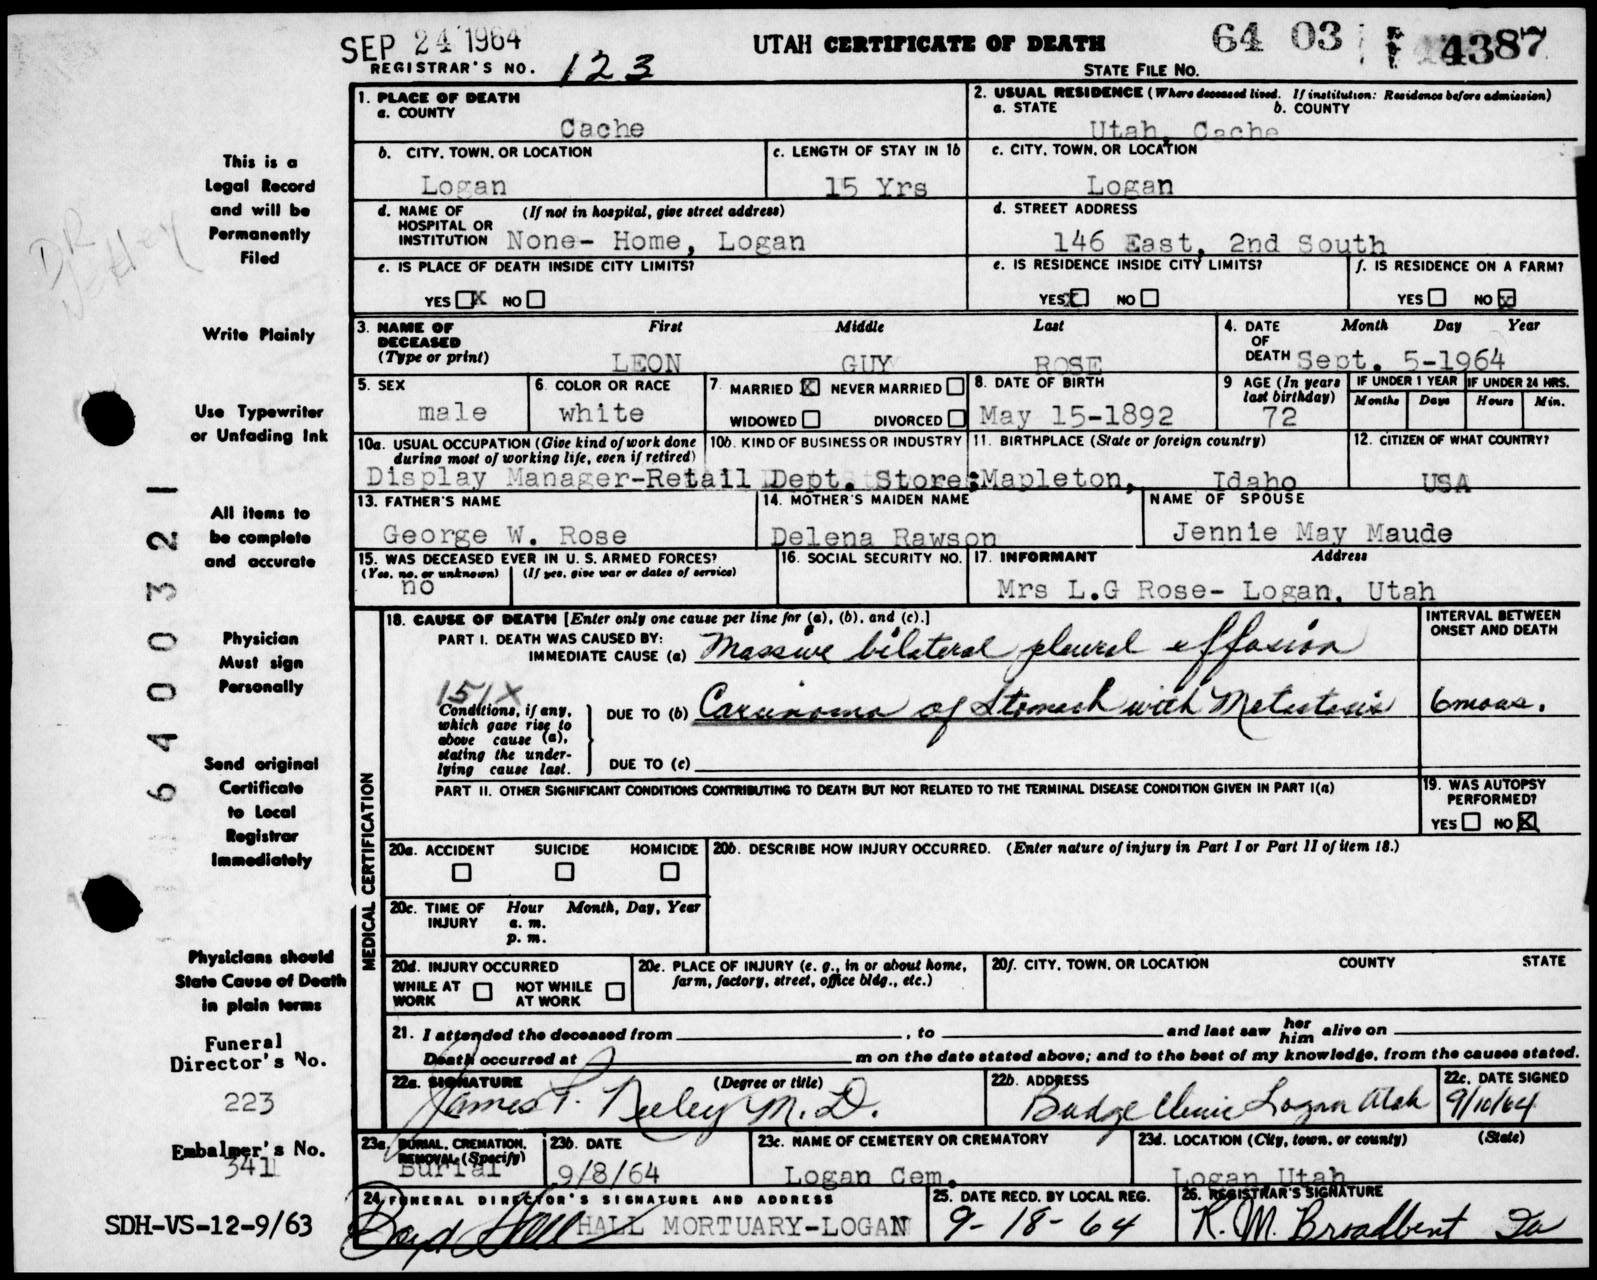 SEP 24 1964
UTAH CERTIFICATE OF DEATH
64 03 4387
REGISTRAR'S NO. 123
STATE FILE NO.
1. PLACE OF DEATH
a. COUNTY
Cache
2. USUAL RESIDENCE (Where deceased lived. If institution: Residence before admission)
a. STATE b. COUNTY
Utah, Cache
b. CITY, TOWN, OR LOCATION
Logan
c. LENGTH OF STAY IN 1b
15 Yrs
c. CITY, TOWN, OR LOCATION
Logan
d. NAME OF HOSPITAL OR INSTITUTION (If not in hospital, give street address)
None- Home, Logan
d. STREET ADDRESS
146 East, 2nd South
e. IS PLACE OF DEATH INSIDE CITY LIMITS?
YES X NO
e. IS RESIDENCE INSIDE CITY LIMITS?
YES X NO
f. IS RESIDENCE ON A FARM?
YES NO X
3. NAME OF DECEASED (Type or print)
First Middle Last
LEON GUY ROSE
4. DATE OF DEATH Month Day Year
Sept. 5-1964
5. SEX
male
6. COLOR OR RACE
white
7. MARRIED X NEVER MARRIED
WIDOWED DIVORCED
8. DATE OF BIRTH
May 15-1892
9 AGE (In years last birthday)
72
IF UNDER 1 YEAR
Months Days
IF UNDER 24 HRS.
Hours Min.
10a. USUAL OCCUPATION (Give kind of work done during most of working life, even if retired)
10b. KIND OF BUSINESS OR INDUSTRY
Display Manager-Retail Dept. Store;
11. BIRTHPLACE (State or foreign country)
Mapleton, Idaho
12. CITIZEN OF WHAT COUNTRY?
USA
13. FATHER'S NAME
George W. Rose
14. MOTHER'S MAIDEN NAME
Delena Rawson
NAME OF SPOUSE
Jennie May Maude
15. WAS DECEASED EVER IN U. S. ARMED FORCES?
(Yes, no, or unknown) (If yes, give war or dates of service)
no
16. SOCIAL SECURITY NO.
17. INFORMANT Address
Mrs L.G Rose- Logan, Utah
MEDICAL CERTIFICATION
18. CAUSE OF DEATH [Enter only one cause per line for (a), (b), and (c).]
PART I. DEATH WAS CAUSED BY:
IMMEDIATE CAUSE (a) Massive bilateral pleural effusion
INTERVAL BETWEEN ONSET AND DEATH
151X
Conditions, if any, which gave rise to above cause (a), stating the underlying cause last.
DUE TO (b) Carcinoma of Stomach with Metastasis
6 moas.
DUE TO (c)
PART II. OTHER SIGNIFICANT CONDITIONS CONTRIBUTING TO DEATH BUT NOT RELATED TO THE TERMINAL DISEASE CONDITION GIVEN IN PART I(a)
19. WAS AUTOPSY PERFORMED?
YES NO X
20a. ACCIDENT SUICIDE HOMICIDE
20b. DESCRIBE HOW INJURY OCCURRED. (Enter nature of injury in Part I or Part II of item 18.)
20c. TIME OF INJURY Hour Month, Day, Year
a. m.
p. m.
20d. INJURY OCCURRED
WHILE AT WORK NOT WHILE AT WORK
20e. PLACE OF INJURY (e. g., in or about home, farm, factory, street, office bldg., etc.)
20f. CITY, TOWN, OR LOCATION COUNTY STATE
21. I attended the deceased from , to and last saw her him alive on
Death occurred at m on the date stated above; and to the best of my knowledge, from the causes stated.
22a. SIGNATURE (Degree or title)
James P. Neeley M.D.
22b. ADDRESS
Budge Clinic Logan Utah
22c. DATE SIGNED
9/10/64
23a. BURIAL, CREMATION, REMOVAL (Specify)
Burial
23b. DATE
9/8/64
23c. NAME OF CEMETERY OR CREMATORY
Logan Cem.
23d. LOCATION (City, town, or county) (State)
Logan Utah
24. FUNERAL DIRECTOR'S SIGNATURE AND ADDRESS
Boyd Hall HALL MORTUARY-LOGAN
25. DATE RECD. BY LOCAL REG.
9-18-64
26. REGISTRAR'S SIGNATURE
R. M. Broadbent
This is a
Legal Record
and will be
Permanently
Filed
Write Plainly
Use Typewriter
or Unfading Ink
All items to
be complete
and accurate
Physician
Must sign
Personally
Send original
Certificate
to Local
Registrar
Immediately
Physicians should
State Cause of Death
in plain terms
Funeral
Director's No.
223
Embalmer's No.
341
SDH-VS-12-9/63
64000321